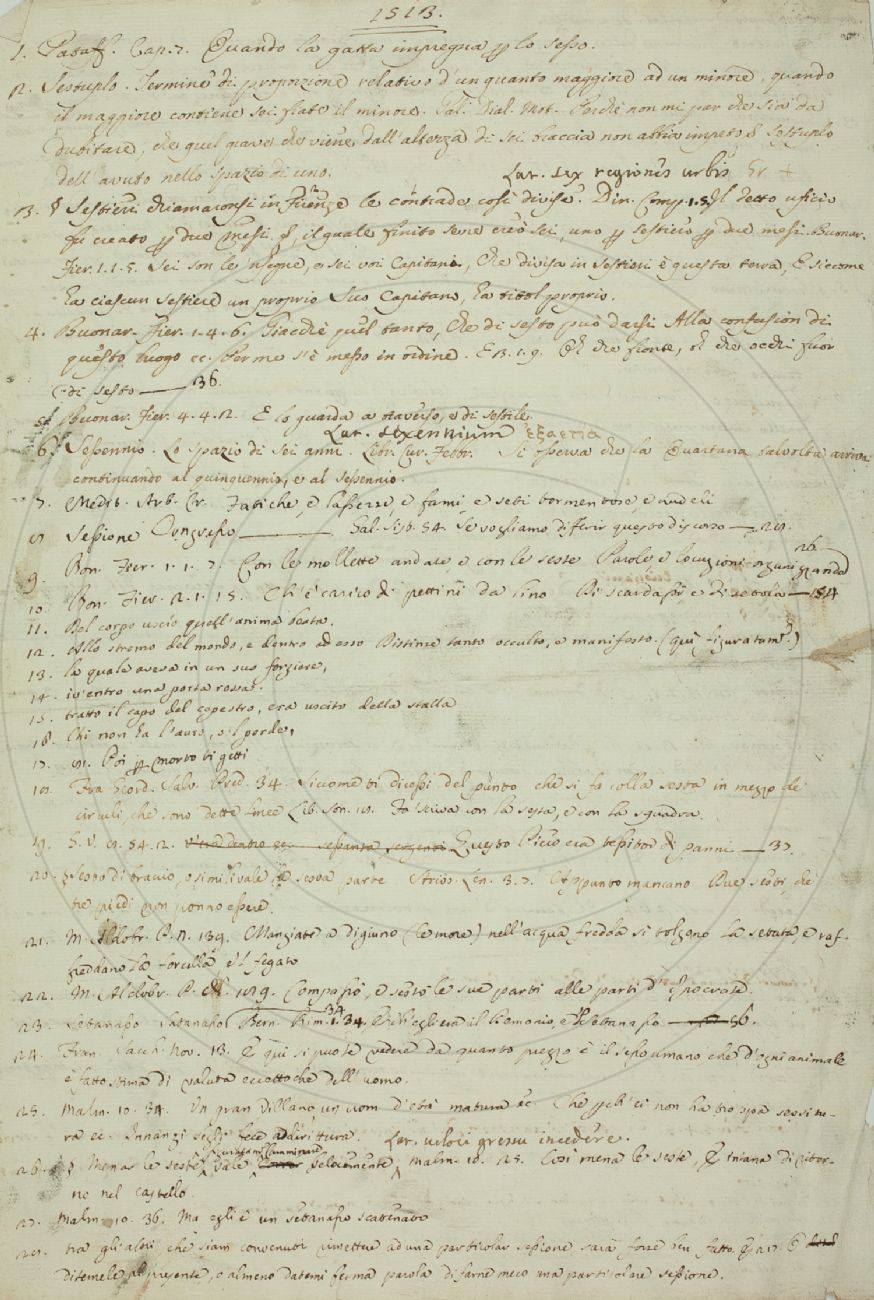 1513.
1. Pataff. Cap. 7. Quando la gatta impregna p lo sesso.
2. Sestuplo. Termine di proporzione relativo d'un quanto maggiore ad un minore, quando
il maggiore contiene sei fiate il minore. Gal. Dial. Mot. Perchè non mi par che sia da
dubitare, che quel grave che viene dall'altezza di sei braccia non abbia impeto sestuplo
dell'avuto nello spazio di uno.
Lat. sex regionis urbis
3. § Sestieri chiamaronsi in Firenze le contrade così divise. Din. Comp. 1. 5. Il detto uficio
fu creato p due mesi, il quale finito se ne creò sei, uno p sestiero p due mesi. Buonar.
Fier. 1. 1. 5. Sei son le 'nsegne, e sei voi Capitani, Che divisa in sestieri è questa terra, E siccome
ha ciascun sestiere un proprio suo Capitano, ha titol proprio.
4. Buonar. Fier. 1. 4. 6. Giacchè quel tanto, Che di sesto può darsi Alla confusion di
questo luogo ec. Per me s'è messo in ordine. E 3. 1. 9. Oh che fronte, oh che occhi fuor
di sesto — 36.
5. Buonar. Fier. 4. 4. 12. E lo guarda a traverso, e di sestile
Lat. sexennium ἑξαετία
6. Sessennio. Lo spazio di sei anni. Libr. Cur. Febbr. Si osserva che la Quartana talvolta arriva
continuando al quinquennio, e al sessennio.
7. Medit. Arb. Cr. Fatiche, e lassezze, e fami e seti tormentose, e crudeli
8. Sessione Congresso — Gal. Sist. 54. Se vogliamo differir questo discorso — 28.
9. Bon. Fier. 1. 1. 7. Con le mollette andate e con le seste Parole, e locuzioni organizzando 26.
10. Bon. Fier. 2. 1. 15. Chi è carico di pettini da lino Di scardassi e di setole — 154
11. Del corpo uscio quell'anima beata.
12. Allo stremo del mondo, e dentro ad esso Distinse tanto occulto, e manifesto. (qui figuratam.)
13. la quale aveva in un suo forziere,
14. iv'entro una porta rossa.
15. tratto il capo del capestro, era uscito della stalla
16. Chi non ha l'auro, o 'l perde,
17. Poi p morto ti getti
18. Fra Giord. Salv. Pred. 34. Siccome ti dicessi del punto che si fa colla sesta in mezzo de'
circuli, che sono dette linee Lib. Son. Fa' con la sesta, e con la squadra.
19. G. V. 8. 54. 2. Questo Piero era tessitor di panni — 37.
20. Sesto di braccio, o simili vale sesta parte Arios. Len. 3. 7. Appunto mancano Due sesti, che
tre piedi non ponno essere.
21. M. Aldobr. P. N. 139. Mangiate a digiuno (le more) nell'acqua fredda si tolgono la setata, e raf-
freddano la forcella e 'l fegato
22. M. Aldobr. P. N. 189. Compassò, e sestò le sue parti alle parti d'Ipocrate.
23. Satanasso Bern. Rim. 1. 34. Egli era il Demonio, e 'l Setanasso — 56.
24. Fran. Sacch. Nov. 13. E qui si puote vedere da quanto prezzo è il sesso umano che d'ogni animale
è fatto stima di valuta eccetto che dell'uomo.
25. Malm. 10. 34. Un gran Villano, un uom d'età matura ec Che pchè ei non ha troppa sessitu-
ra ec. Innanzi se gli fece addirittura. Lat. veloci gressu incedere.
26. § Menar le seste, vale velocemente Malm. 10. 25. Così mena le seste, di ritor-
no nel castello
27. Malm. 10. 36. Ma egli è un setanasso scatenato
28. tra gli altri, che siam convenuti rimettere ad una particolar sessione, sarà forse ben fatto
ditemele al presente, o almeno datemi ferma parola di farne meco una particolare sessione.